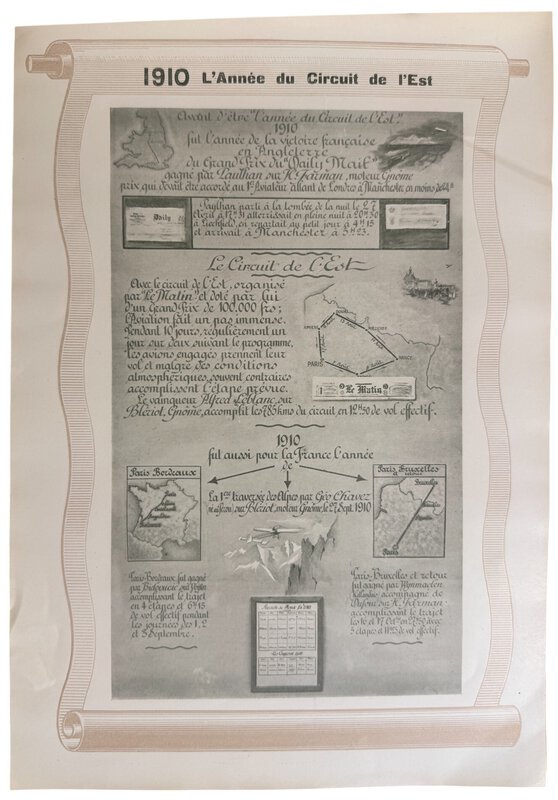 1910 L'Année du Circuit de l'Est
Avant d'être "l'année du Circuit de l'Est"
1910
fut l'année de la victoire française
en Angleterre
du Grand Prix du "Daily Mail"
gagné par Paulhan sur H. Farman, moteur Gnôme
prix qui devait être accordé au 1er Aviateur allant de Londres à Manchester en moins de 24h
Daily
Paulhan parti à la tombée de la nuit le 27
Avril à 17h31 atterrissait en pleine nuit à 20h30
à Liechfield, en repartait au petit jour à 4h15
et arrivait à Manchester à 5h23.
Le Circuit de l'Est
Avec le circuit de l'Est, organisé
par "Le Matin" et doté par lui
d'un Grand Prix de 100.000 frs;
l'Aviation fait un pas immense.
Pendant 10 jours, régulièrement un
jour sur deux suivant le programme,
les avions engagés prennent leur
vol et malgré des conditions
atmosphériques, souvent contraires
accomplissent l'étape prévue.
Le vainqueur Alfred Leblanc, sur
Blériot, Gnôme, accomplit les 785 kms du circuit en 12h50 de vol effectif.
DOUAI
AMIENS
MEZIERES
PARIS
NANCY
Le Matin
1910
fut aussi pour la France l'année
de
Paris Bordeaux
Paris Bruxelles
et retour
La 1ère traversée des Alpes par Géo Chavez
sur Blériot, moteur Gnôme, le 27 Sept. 1910
Paris
Bordeaux
Bruxelles
Bruxelles
Paris
Paris-Bordeaux, fut gagné
par Bielovucic sur Voisin
accomplissant le trajet
en 4 étapes et 6h15
de vol effectif pendant
les journées des 1, 2
et 3 Septembre.
Paris-Bruxelles et retour
fut gagné par Wynmaelen
accompagné de
Dufour sur H. Farman
accomplissant le trajet
les 16 et 17 Oct. en 27h50 avec
3 étapes et 11h25 de vol effectif.